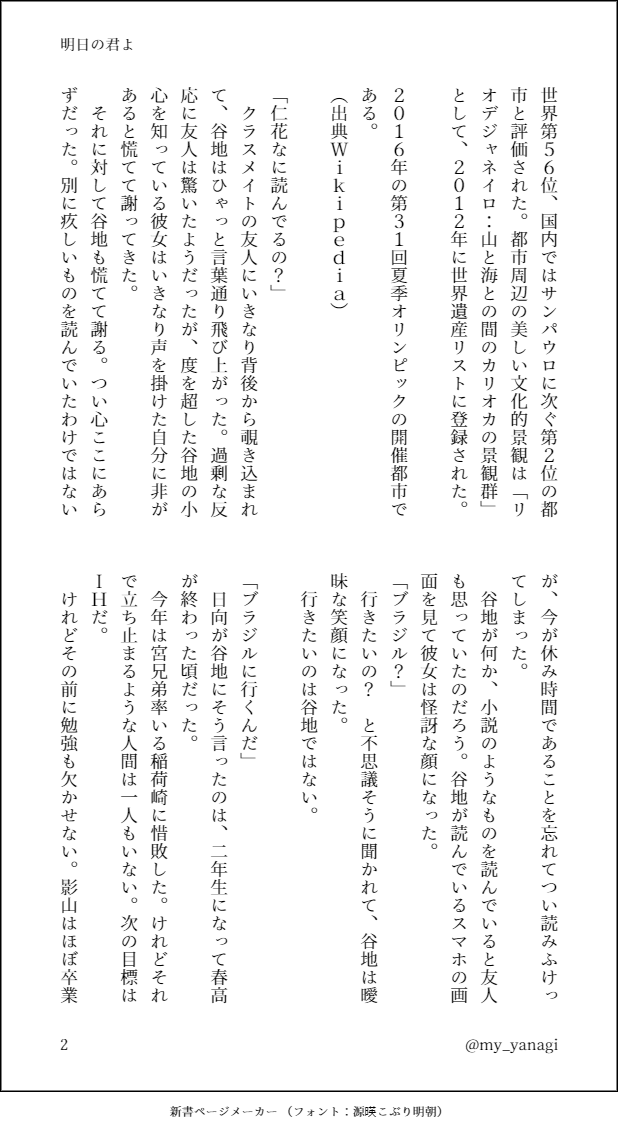 明日の君よ
世界第５６位、国内ではサンパウロに次ぐ第２位の都
市と評価された。都市周辺の美しい文化的景観は「リ
オデジャネイロ：山と海との間のカリオカの景観群」
として、２０１２年に世界遺産リストに登録された。
２０１６年の第３１回夏季オリンピックの開催都市で
ある。
（出典Ｗｉｋｉｐｅｄｉａ）
「仁花なに読んでるの？」
クラスメイトの友人にいきなり背後から覗き込まれ
て、谷地はひゃっと言葉通り飛び上がった。過剰な反
応に友人は驚いたようだったが、度を超した谷地の小
心を知っている彼女はいきなり声を掛けた自分に非が
あると慌てて謝ってきた。
それに対して谷地も慌てて謝る。つい心ここにあら
ずだった。別に疚しいものを読んでいたわけではない
が、今が休み時間であることを忘れてつい読みふけっ
てしまった。
谷地が何か、小説のようなものを読んでいると友人
も思っていたのだろう。谷地が読んでいるスマホの画
面を見て彼女は怪訝な顔になった。
「ブラジル？」
行きたいの？　と不思議そうに聞かれて、谷地は曖
昧な笑顔になった。
行きたいのは谷地ではない。
「ブラジルに行くんだ」
日向が谷地にそう言ったのは、二年生になって春高
が終わった頃だった。
今年は宮兄弟率いる稲荷崎に惜敗した。けれどそれ
で立ち止まるような人間は一人もいない。次の目標は
ＩＨだ。
けれどその前に勉強も欠かせない。影山はほぼ卒業
2
@my_yanagi
新書ページメーカー（フォント：源暎こぶり明朝）